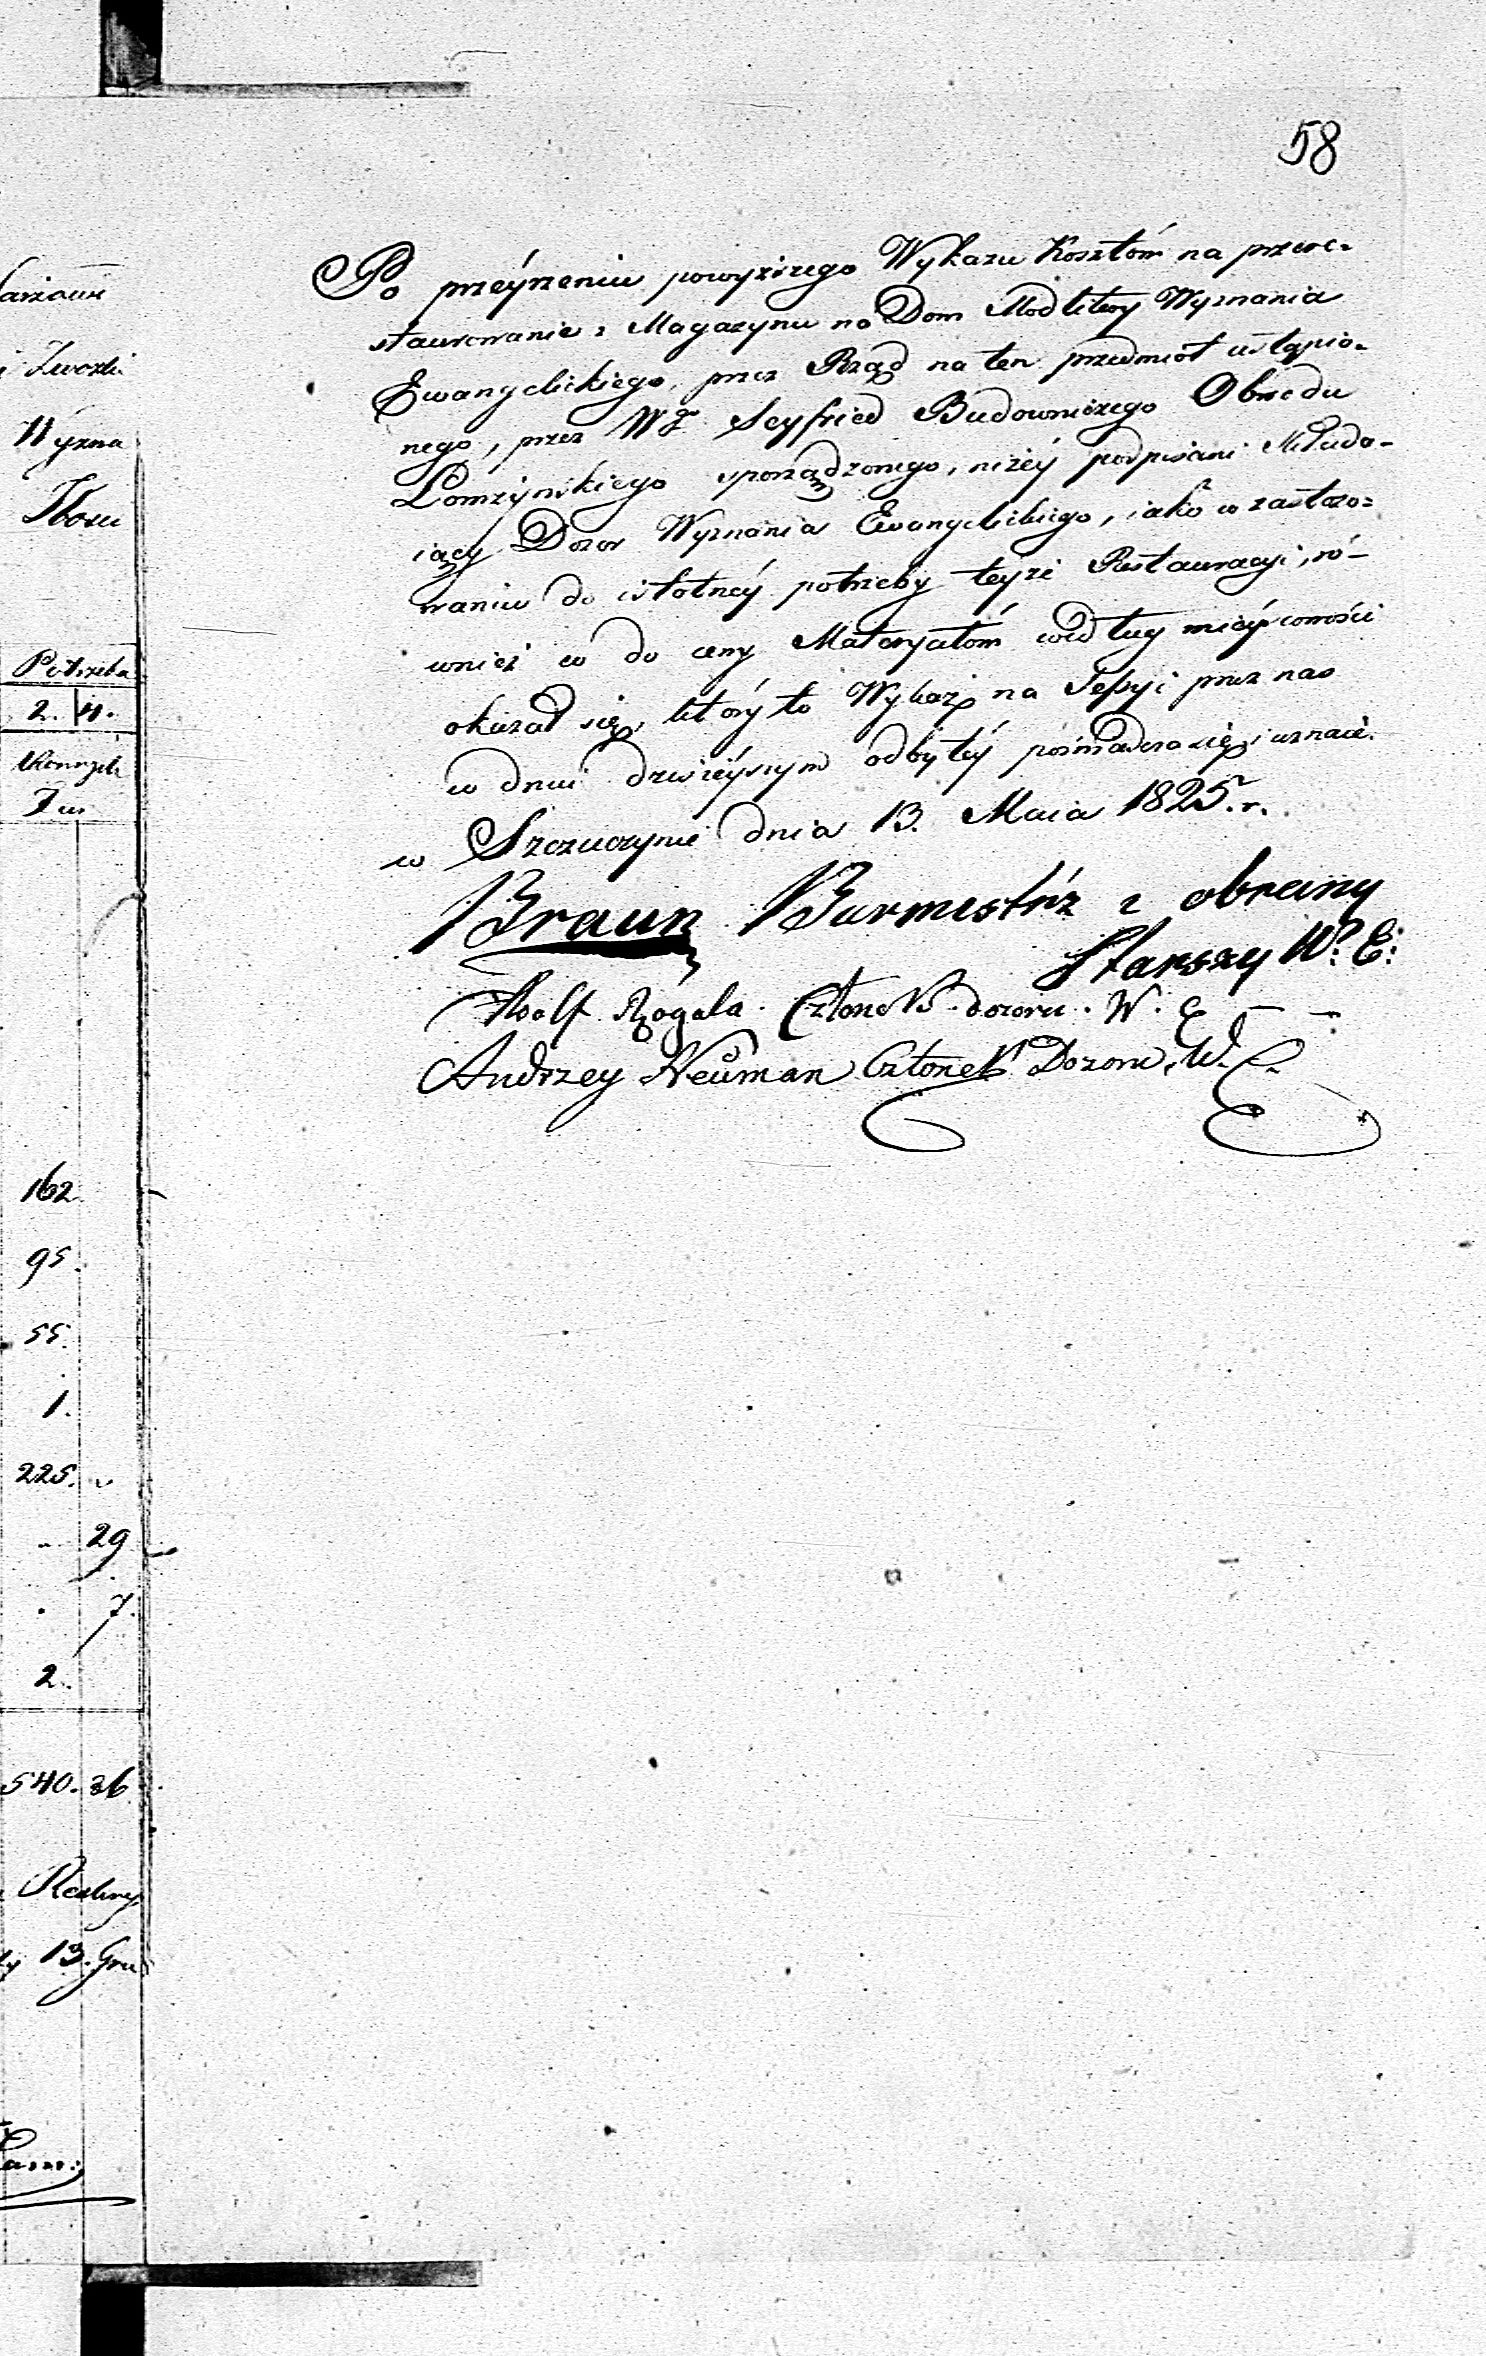 58
Po przeyrzeniu powyższego Wykazu Kosztów na przere-
staurowanie z Magazynu na Dom Modlitwy Wyznania
Ewangelickiego, przez Rząd na ten przedmiot ustąpio-
nego, przez WJ Seyfried Budowniczego Obwodu
Łomżyńskiego sporządzonego, niżéy podpisani składa-
iący Dozor Wyznania Ewangelickiego, iako w zastoso-
waniu do istotnéy potrzeby teyże Restauracyi, ró-
wnież co do ceny Materyałów według mieyscowości
okazał się, który to Wykaz na Sessyi przez nas
w dniu dzisiéyszym odbytéy poświadcza się i uznaie.
w Szczuczynie dnia 13. Maia 1825. r.
Braun Burmistrz i obrany
Starszy W. E.
Adolf Rogala. Członek dozoru. W. E
Andrzey Neüman Członek Dozoru W. E.
Wyzna
Zboru
Potrzeba
2. 4.
162
95.
55.
1.
225.
29
7.
2.
540. 26
13. Gru